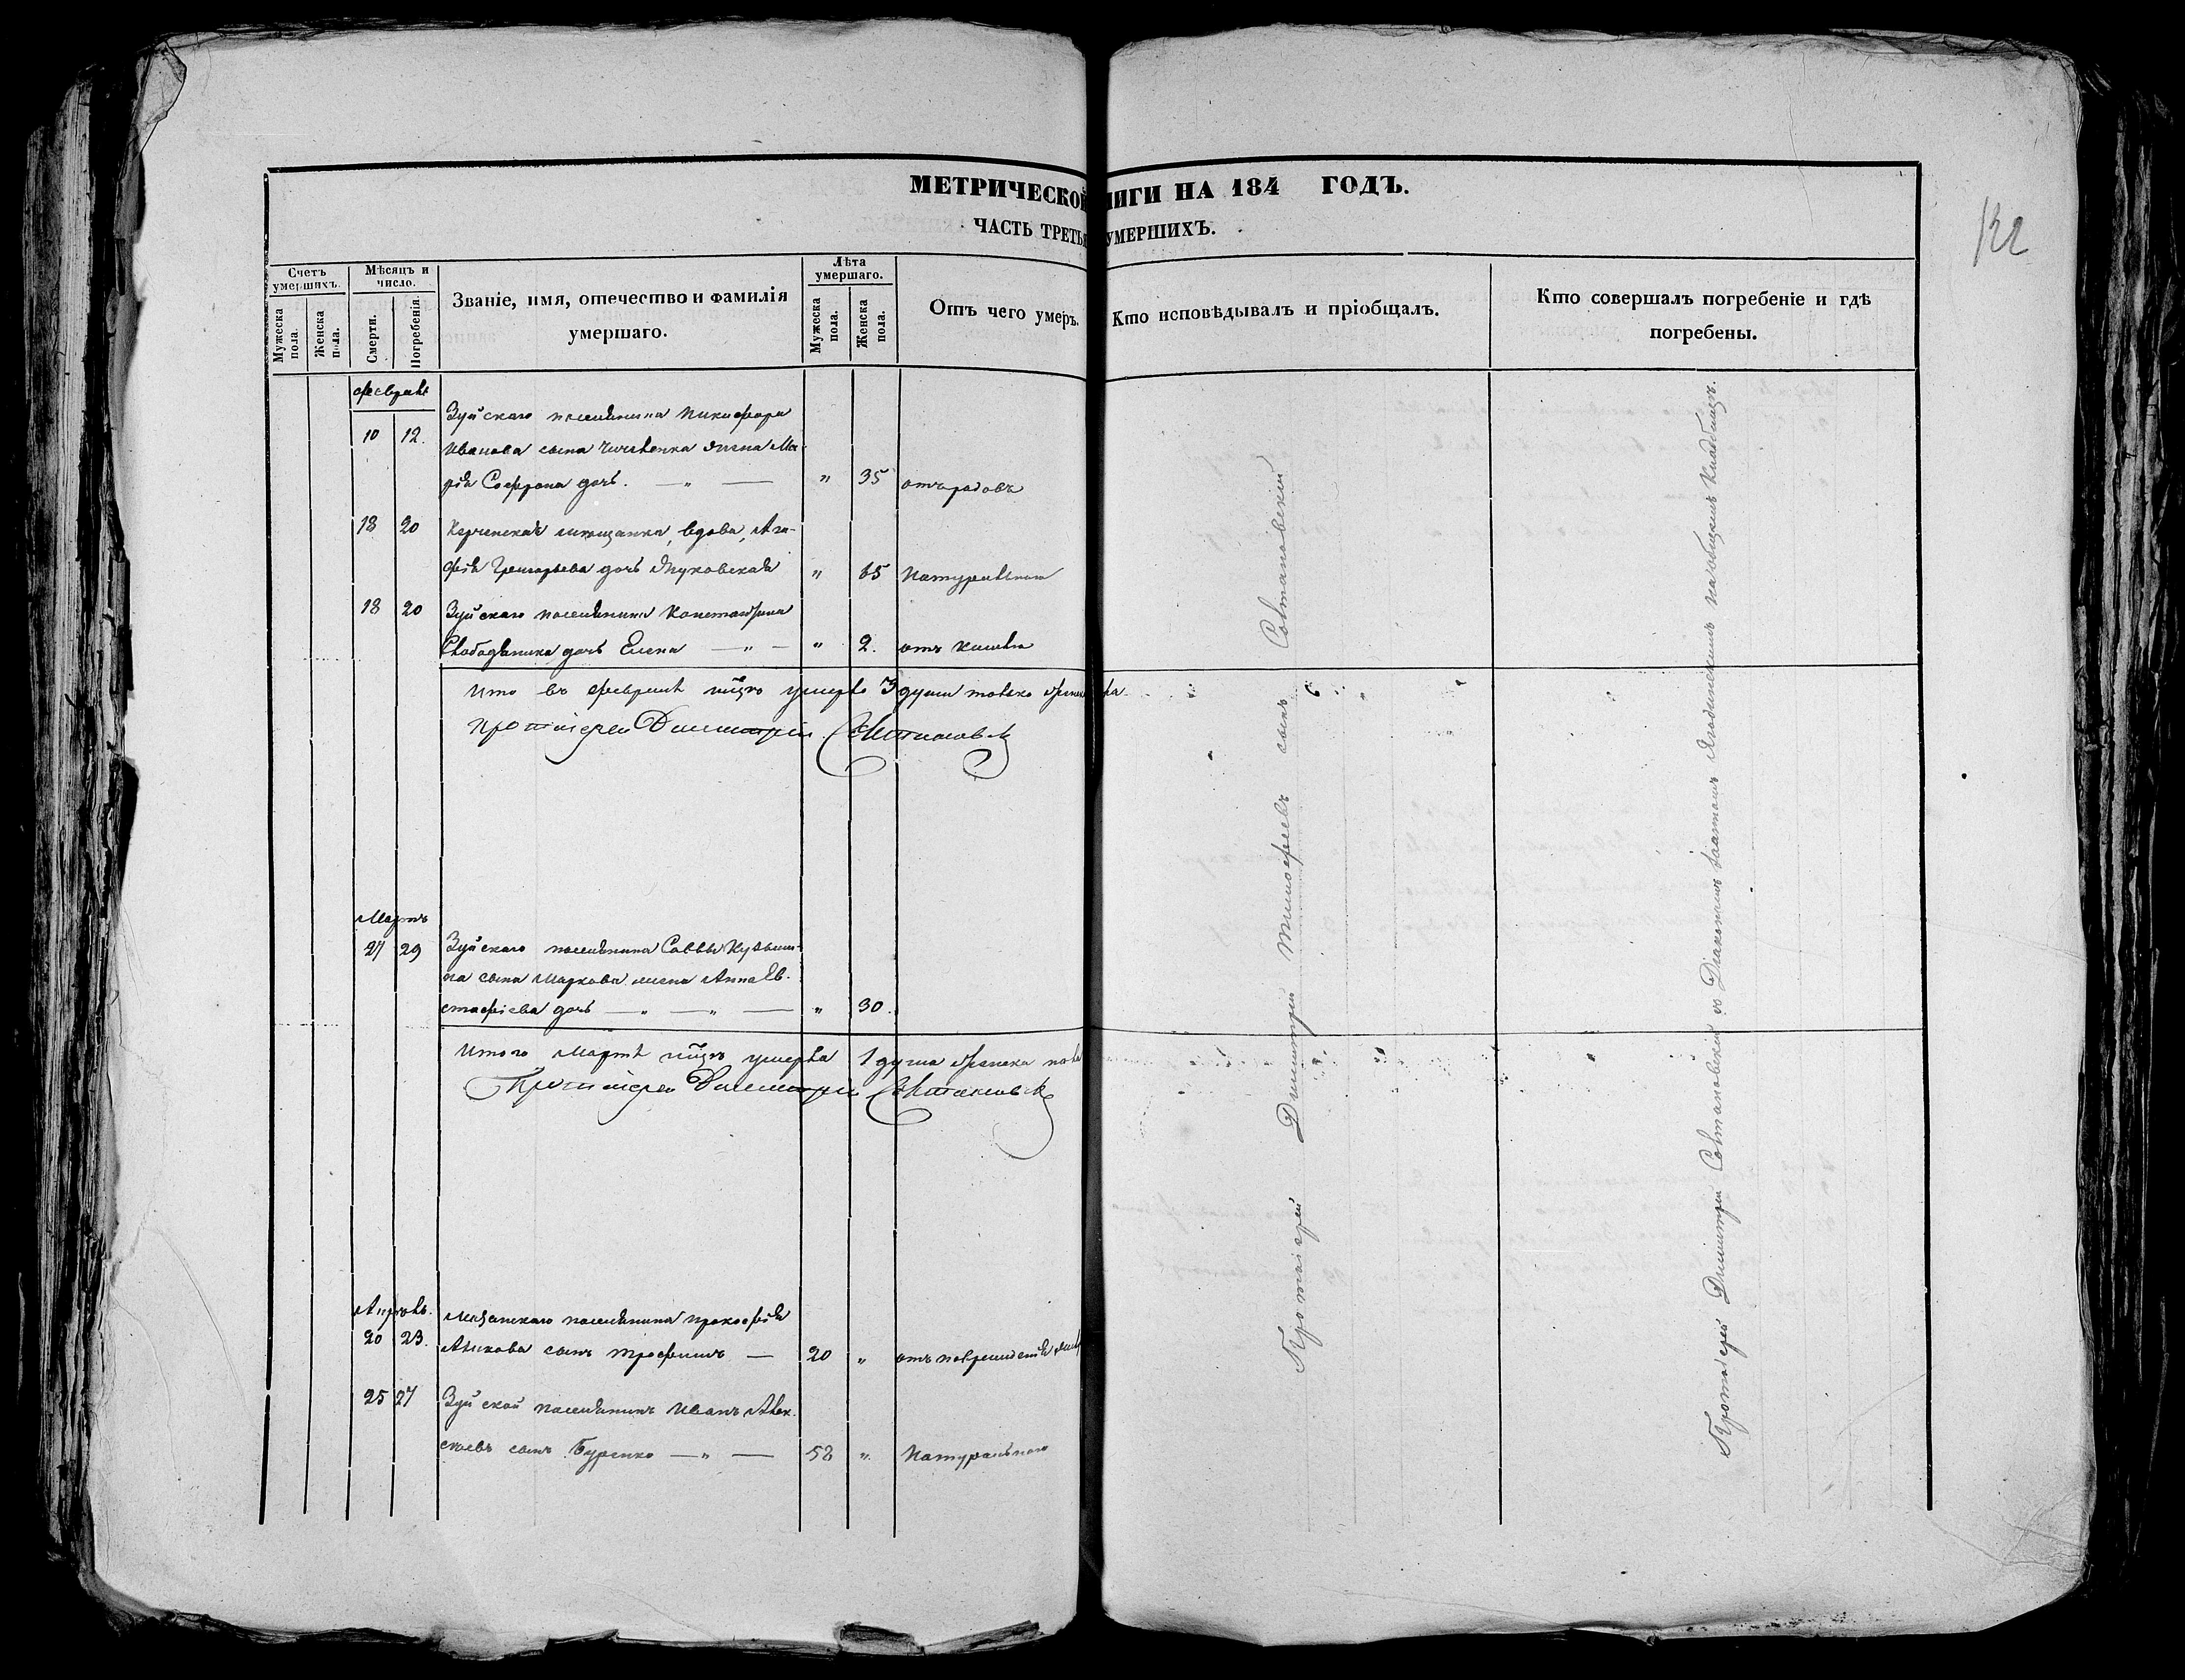 МЕТРИЧЕСКОЙ
НИГИ НА 184 ГОДЪ.
ЧАСТЬ ТРЕТЬЯ
УМЕРШИХЪ.
132
Счетъ умершихъ.
Мужеска пола.
Женска пола.
Мѣсяцъ и число.
Смерти.
Погребенія.
Званіе, имя, отечество и фамилія
умершаго.
Лѣта умершаго.
Мужеска пола.
Женска пола.
Отъ чего умеръ.
Кто исповѣдывалъ и пріобщалъ.
Кто совершалъ погребеніе и гдѣ
погребены.
Февраль
10 12. Зуйскаго поселянина Никифора
Иванова сына жена Ма-
рія Софрона дочь. — „ — „ 35 отъ родовъ
18 20 Керченская мещанка, вдова, Ага-
фія Григорьева дочь „ 65 Натуральною
18 20 Зуйскаго поселянина Константина
дочь Елена — „ — „ 2. отъ кашля
Итого въ февралѣ мцѣ умерло 3 души только
Протоіерей Димитрій
Мартъ
27 29 Зуйскаго поселянина Саввы Кузьми-
на сына Маркова жена Анна Ев-
стафіева дочь — „ — „ — „ 30.
Итого Мартѣ мцѣ умерла 1 душа женска пола
Протоіерей Димитрій
Апрѣль.
20 23. поселянина Прокофія
сынъ Трофимъ — 20 „ отъ
25 27 Зуйской поселянинъ Иванъ Алек-
сѣевъ сынъ Буренко — „ — 58 „ Натуральною
Протоіерей Димитрій Тимофеевъ сынъ Солтановскій
Протоіерей Димитрій Солтановскій съ Діакономъ на общемъ кладбищѣ.